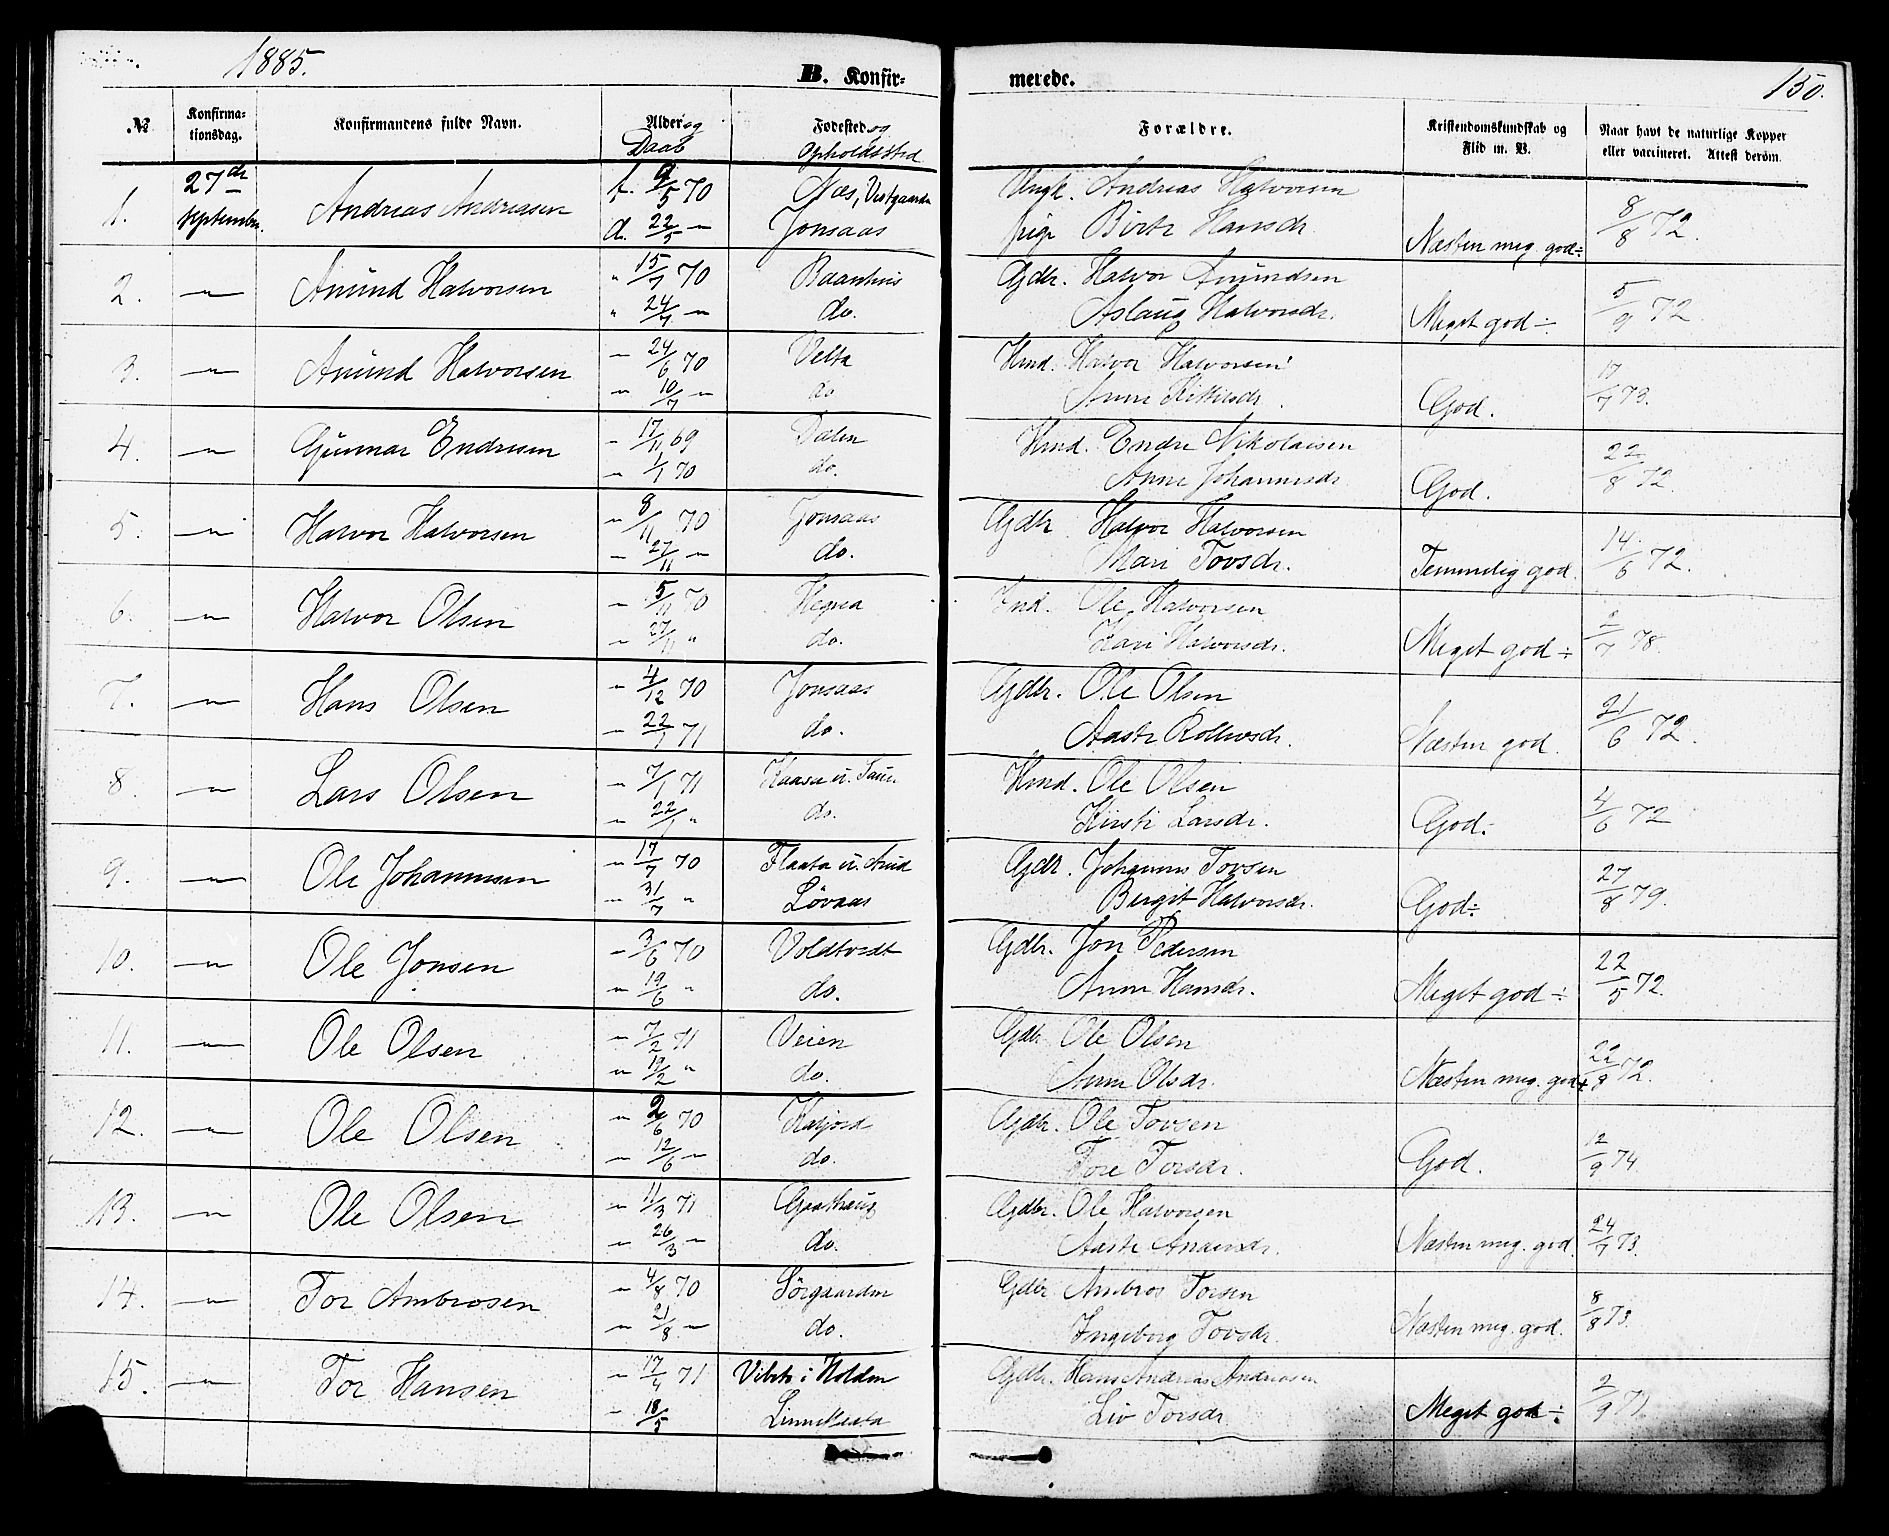 1885.
B. Konfir-
merede.
150.
№
Konfirma-
tionsdag.
Konfirmandens fulde Navn.
Alder og
Daab
Fødested og
Opholdssted
Forældre.
Kristendomskundskab og
Flid m. V.
Naar havt de naturlige Kopper
eller vaccineret. Attest derom.
1. 27de September. Andreas Andreasen f. 9/5 70 Næs, Vestgaarden Ungk. Andreas Halvorsen
d. 22/5 — Jonsaas pige Birte Hansdr. Næsten meg. god÷ 8/8 72.
2. —"— Amund Halvorsen " 15/7 70 Baanhus Gdbr. Halvor Amundsen
" 24/7 —"— do. Aslaug Halvorsdr. Meget god ÷ 5/9 72.
3. —"— Amund Halvorsen —"— 24/6 70 Velta Hmd. Halvor Halvorsen
—"— 10/7 —"— do Anne Kittilsdr. God. 17/7 73.
4. —"— Gunnar Endresen —"— 17/11 69 Dalen Hmd. Endre Nikolaisen
—"— 1/1 70 do. Anne Johannesdr. God. 22/8 72.
5. —"— Halvor Halvorsen —"— 8/11 70 Jonsaas Gdbr. Halvor Halvorsen
—"— 27/11 —"— do. Mari Tovsdr. Temmelig god. 14/6 72.
6. —"— Halvor Olsen —"— 5/11 70 Hegna Ind. Ole Halvorsen
—"— 27/11 " do. Kari Halvorsdr. Meget god ÷ 2/7 78.
7. —"— Hans Olsen —"— 4/12 70 Jonsaas Gdbr. Ole Olsen
—"— 22/1 71 do. Aaste Rollevsdr. Næsten god. 21/6 72.
8. —"— Lars Olsen —"— 7/1 71 Kaasa u. Hmd. Ole Olsen
—"— 22/1 " do. Kirsti Larsdr. God÷ 4/6 72
9. —"— Ole Johannesen —"— 17/7 70 Flaata u. Gdbr. Johannes Tovsen
—"— 31/7 " Løvaas Birgit Halvorsdr. God÷ 27/8 79.
10. —"— Ole Jonsen —"— 3/6 70 Voldtvedt Gdbr. Jon Pedersen
—"— 19/6 " do. Anne Hansdr. Meget god ÷ 22/5 72.
11. —"— Ole Olsen —"— 7/2 71 Veien Gdbr. Ole Olsen
—"— 19/2 " do. Anne Olsdr. Næsten meg. god+ 22/8 72.
12. —"— Ole Olsen —"— 2/6 70 Gdbr. Ole Tovsen
—"— 12/6 —"— do. Tore Torsdr. God. 12/9 74
13. —"— Ole Olsen —"— 11/3 71 Graathaug Gdbr. Ole Halvorsen
—"— 26/3 —"— do. Aaste Andersdr. Næsten meg. god. 24/7 73.
14. —"— Tor Ambrosen —"— 4/8 70 Sørgaarden Gdbr. Ambros Torsen
—"— 21/8 —"— do. Ingeborg Tovsdr. Næsten meg. god. 8/8 73.
15. —"— Tor Hansen —"— 17/4 71 i Holden Gdbr. Hans Andreas Andreasen
—"— 18/5 Liv Torsdr. Meget god ÷ 2/9 71.